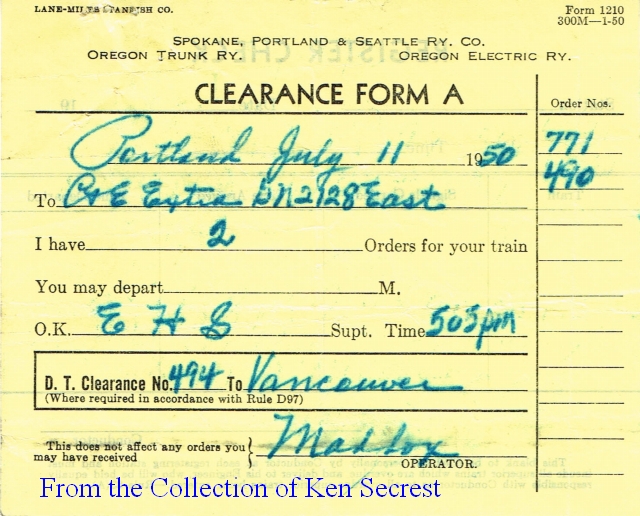 LANE-MILES STANDISH CO.
Form 1210
300M—1-50
SPOKANE, PORTLAND & SEATTLE RY. CO.
OREGON TRUNK RY. OREGON ELECTRIC RY.
CLEARANCE FORM A
Order Nos.
Portland July 11 1950
771
490
To C+E Extra GN 2128 East
I have 2 Orders for your train
You may depart M.
O.K. E H S Supt. Time 505 pm
D. T. Clearance No. 494 To Vancouver
(Where required in accordance with Rule D97)
This does not affect any orders you
may have received
Maddox
OPERATOR.
From the Collection of Ken Secrest